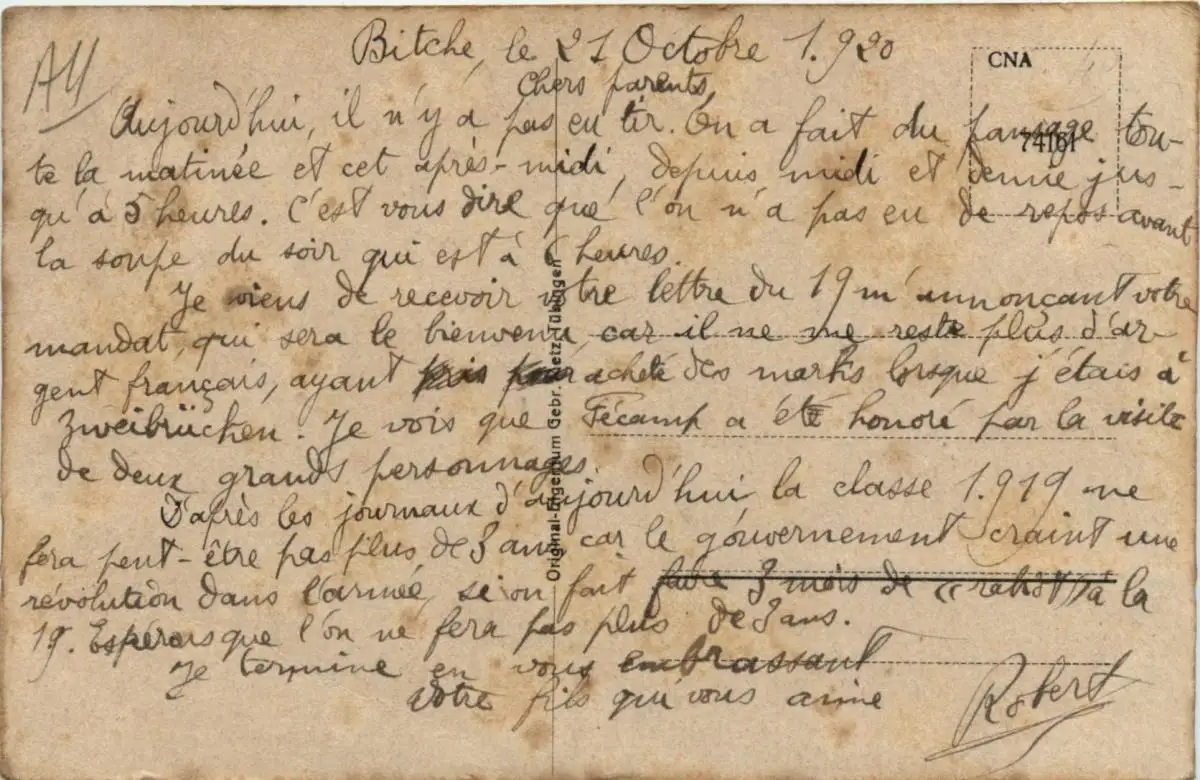 A4
Bitche, le 21 Octobre 1.920
CNA
74161
Chers parents,
Aujourd'hui, il n'y a pas eu tir. On a fait du pansage tou-
te la matinée et cet après-midi, depuis midi et demie jus-
qu'à 5 heures. C'est vous dire que l'on n'a pas eu de repos avant
la soupe du soir qui est à 6 heures.
Je viens de recevoir votre lettre du 19 m'annonçant votre
mandat, qui sera le bienvenu, car il ne me reste plus d'ar-
gent français, ayant acheté des marks lorsque j'étais à
Zweibrücken. Je vois que Fécamp a été honoré par la visite
de deux grands personnages.
D'après les journaux d'aujourd'hui, la classe 1.919 ne
fera peut-être pas plus de 3 ans car le gouvernement craint une
révolution dans l'armée, si on fait faire 3 mois de "rabiot" à la
19. Espérons que l'on ne fera pas plus de 3 ans.
Je termine en vous embrassant
Votre fils qui vous aime
Robert
Original-Eigentum Gebr. Metz, Tübingen